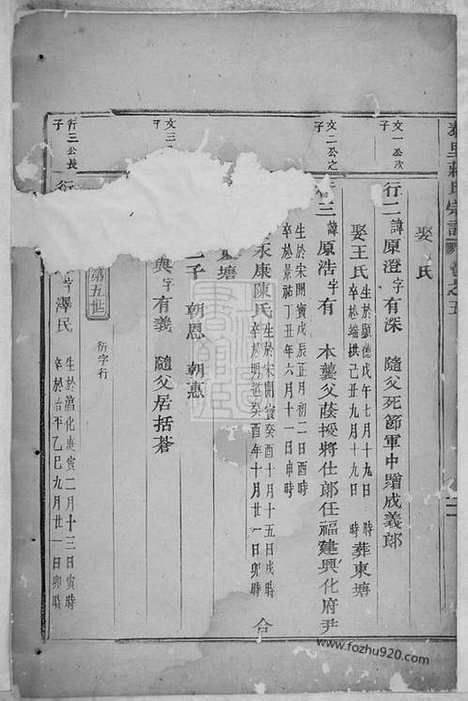 宗譜
卷之五
娶 氏
文一公次
子
行二 諱原澄 字有深 隨父死節軍中贈成義郎
娶王氏 生於顯德戊午七月十九 時
卒於端拱己丑九月十九日 時 葬東塘
文二公之
子
三 諱原浩 字有 木藝父蔭授將仕郎任福建興化府尹
生於宋開寶戊辰正月初二日酉時
卒於景祐丁丑年六月十一日申時
永康陳氏 生於宋開寶癸酉十月十五日戌時
卒於明道癸酉年十月廿一日卯時 合
塘
二子 朝恩 朝惠
文三
子
與 字有義 隨父居括蒼
第五世 衍字行
行三公長
子
行 字澤民 生於淳化庚寅二月十三日寅時
卒於治平乙巳九月廿一日卯時
www.fozhu920.com